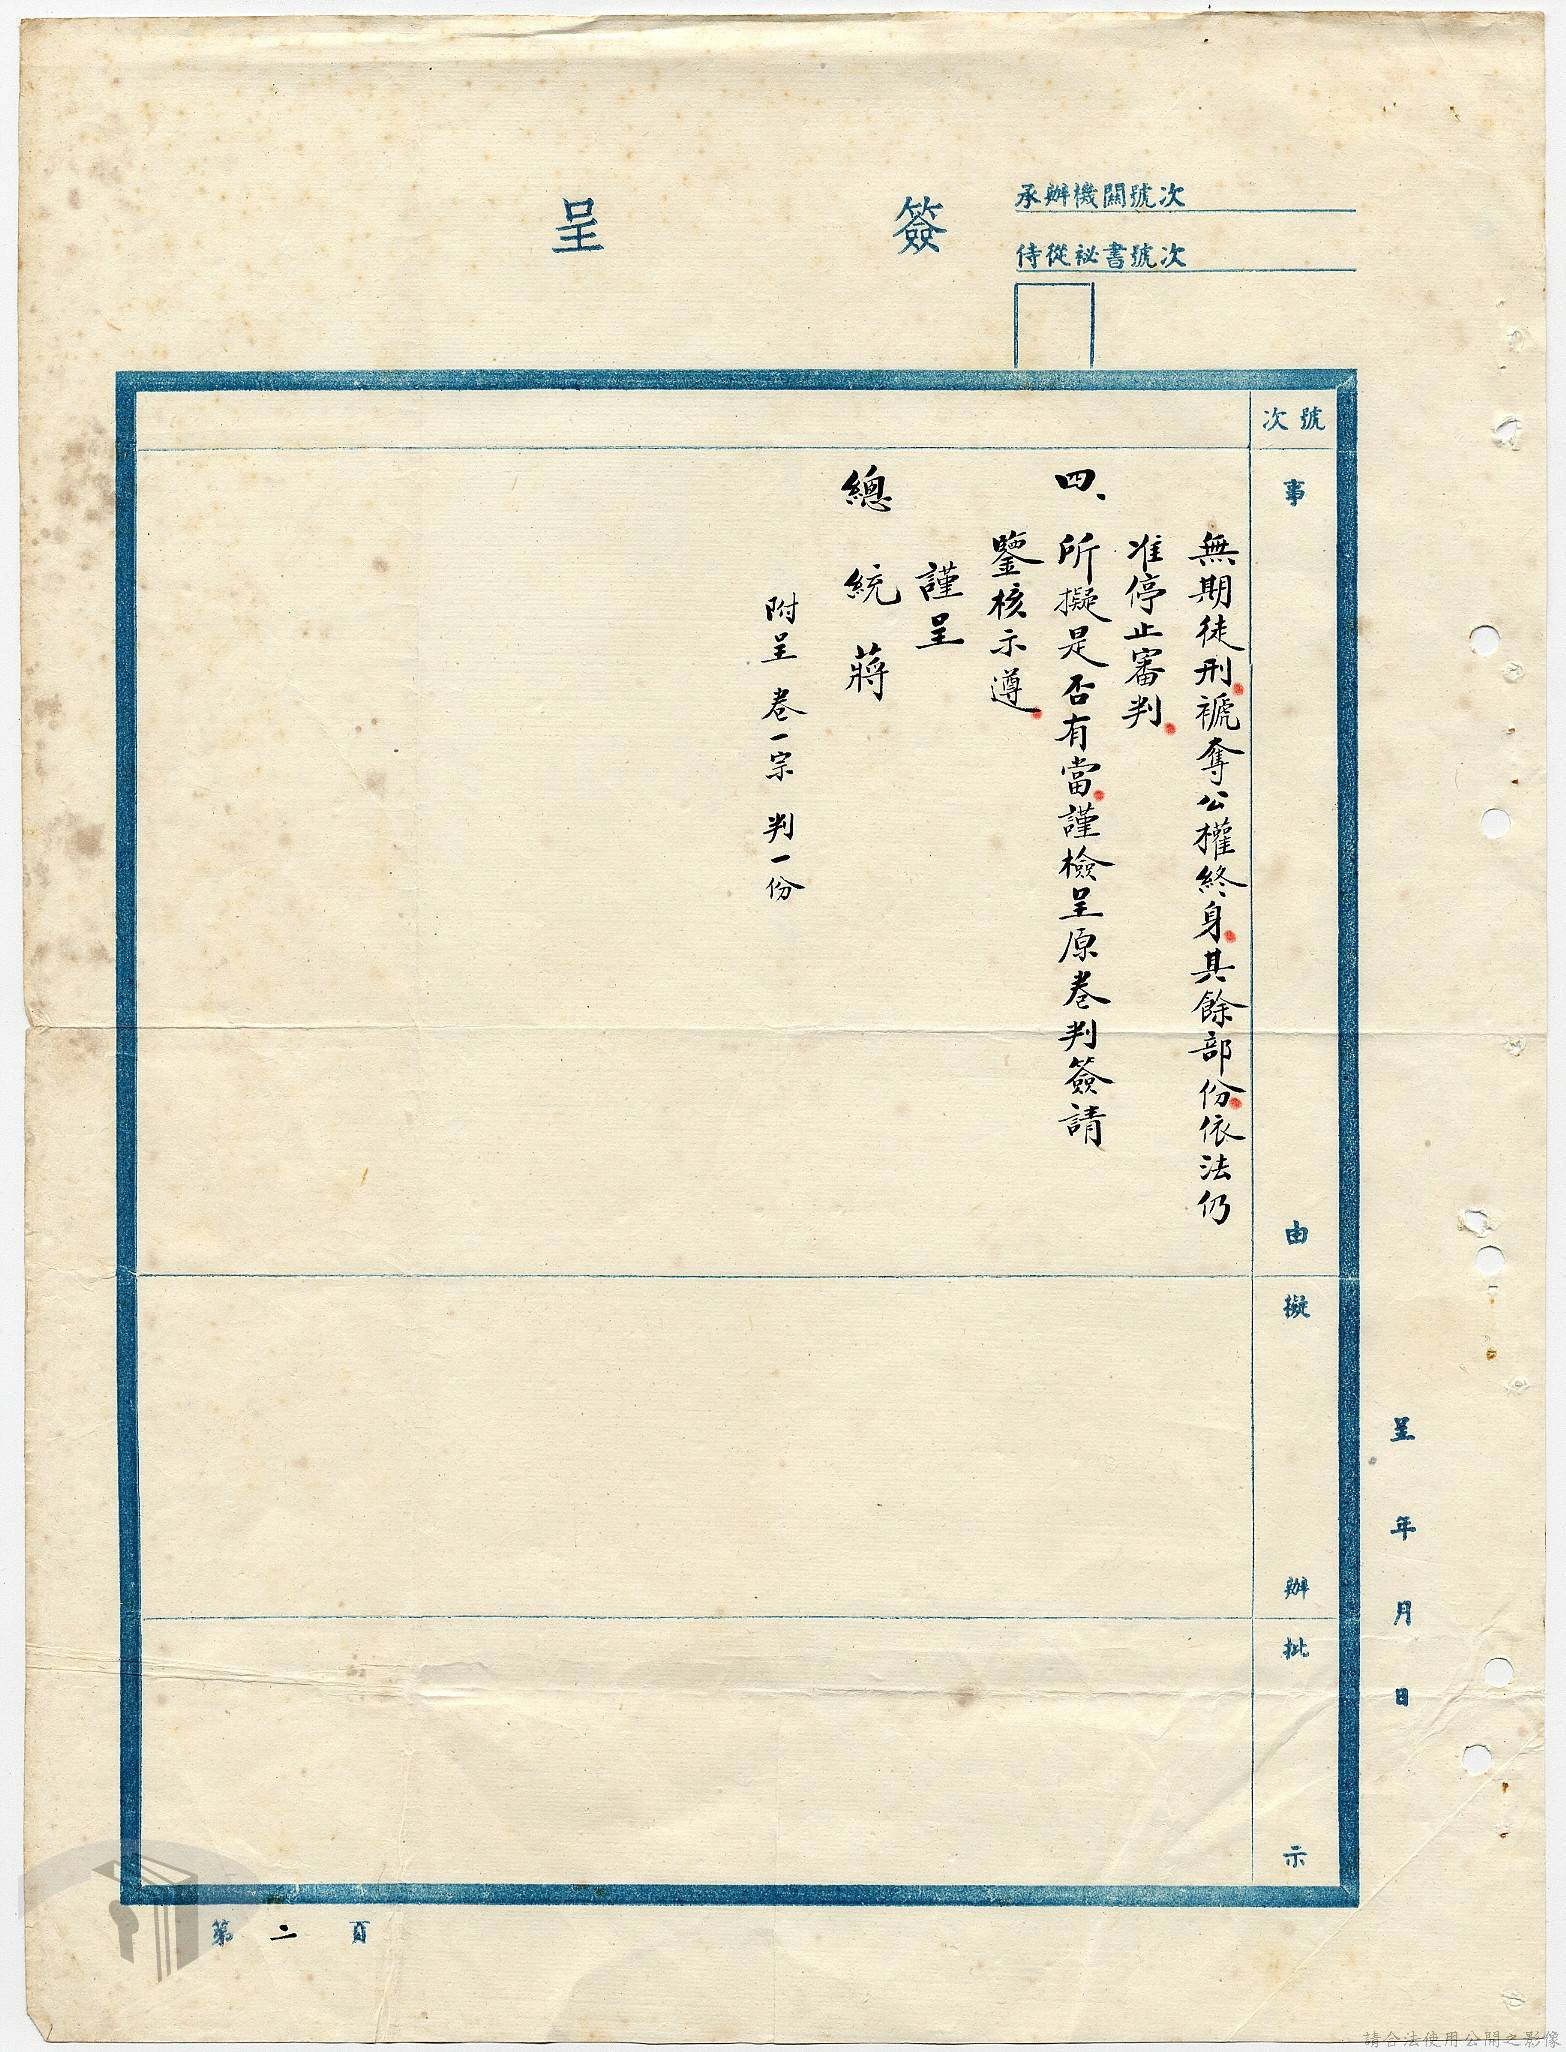 簽呈
承辦機關號次
侍從祕書號次
號次
事由
擬辦
批示
無期徒刑褫奪公權終身其餘部份依法仍
准停止審判
四、所擬是否有當謹檢呈原卷判簽請
鑒核示遵
謹呈
總統蔣
附呈卷一宗判一份
呈年月日
第二頁
請合法使用公開之影像